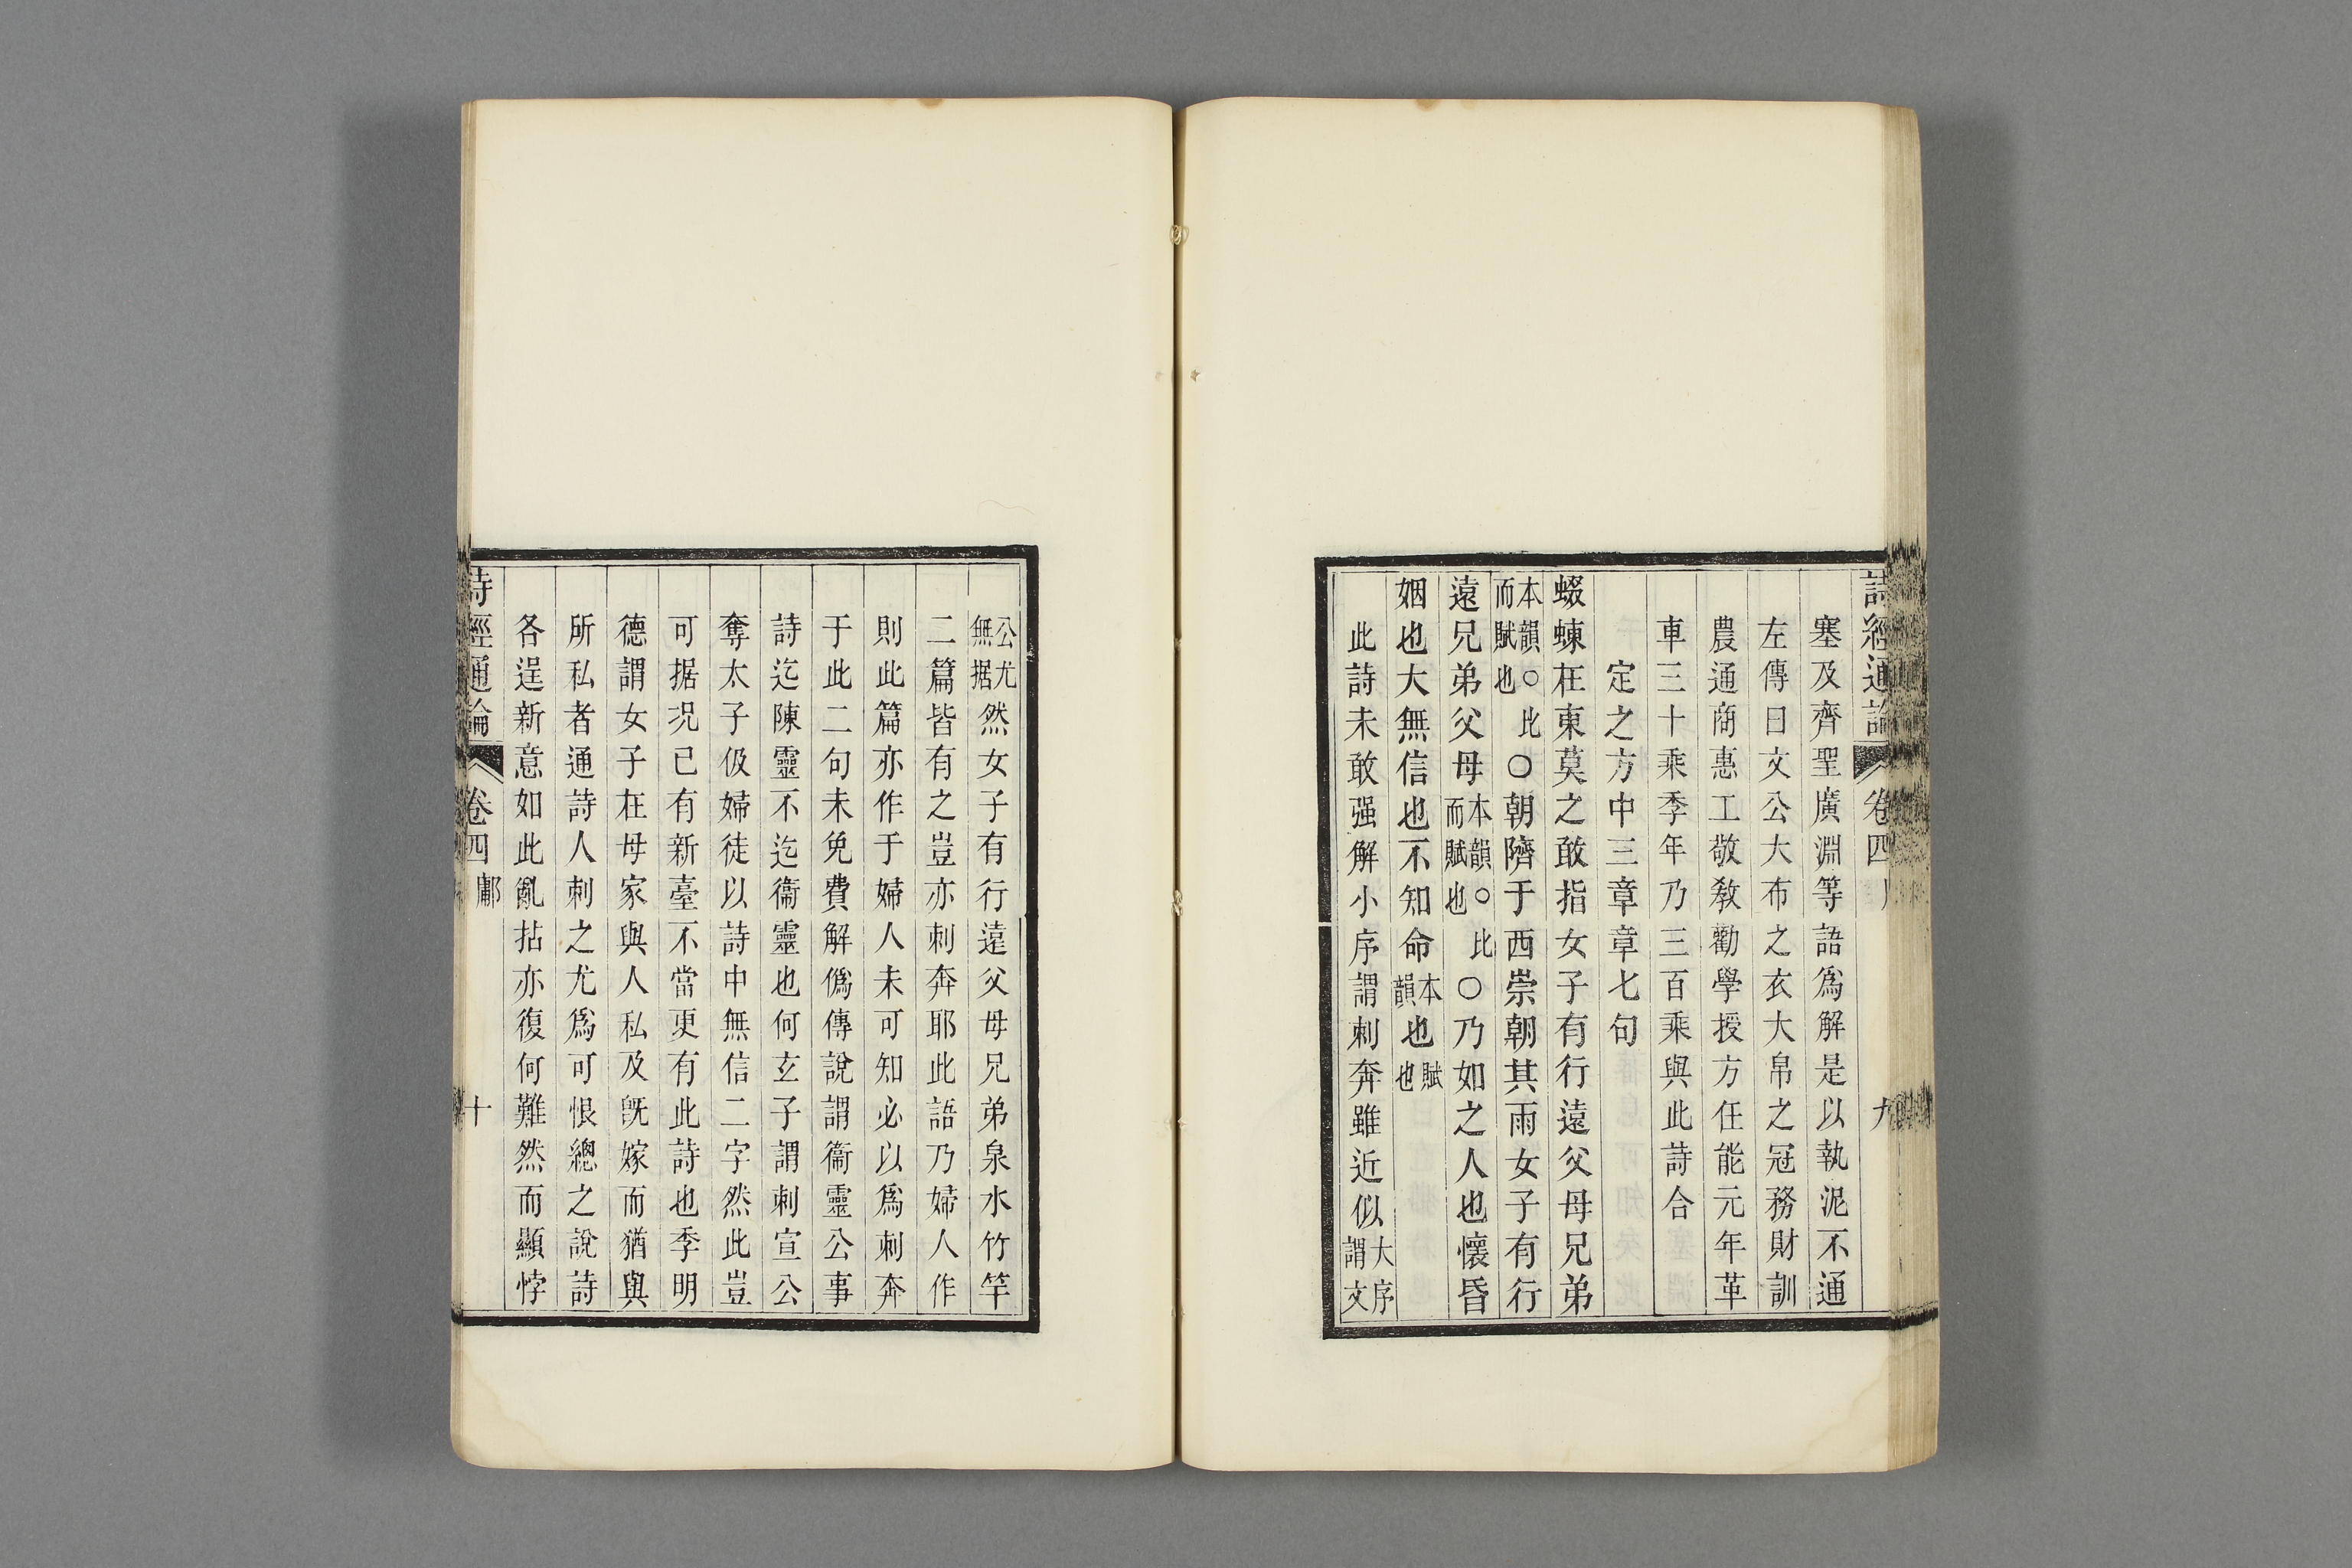 詩經通論 卷四 九
塞及齊聖廣淵等語爲解是以執泥不通
左傳曰文公大布之衣大帛之冠務財訓
農通商惠工敬敎勸學授方任能元年革
車三十乘季年乃三百乘與此詩合
定之方中三章章七句
蝃蝀在東莫之敢指女子有行遠父母兄弟
本韻○比而賦也○朝隮于西崇朝其雨女子有行
遠兄弟父母本韻○比而賦也○乃如之人也懷昏
姻也大無信也不知命本韻也賦也
此詩未敢强解小序謂刺奔雖近似大序謂文
公尤無据然女子有行遠父母兄弟泉水竹竿
二篇皆有之豈亦刺奔耶此語乃婦人作
則此篇亦作于婦人未可知必以爲刺奔
于此二句未免費解僞傳說謂衞靈公事
詩迄陳靈不迄衞靈也何玄子謂刺宣公
奪太子伋婦徒以詩中無信二字然此豈
可据況已有新臺不當更有此詩也季明
德謂女子在母家與人私及旣嫁而猶與
所私者通詩人刺之尤爲可恨總之說詩
各逞新意如此亂拈亦復何難然而顯悖
詩經通論 卷四 鄘 十